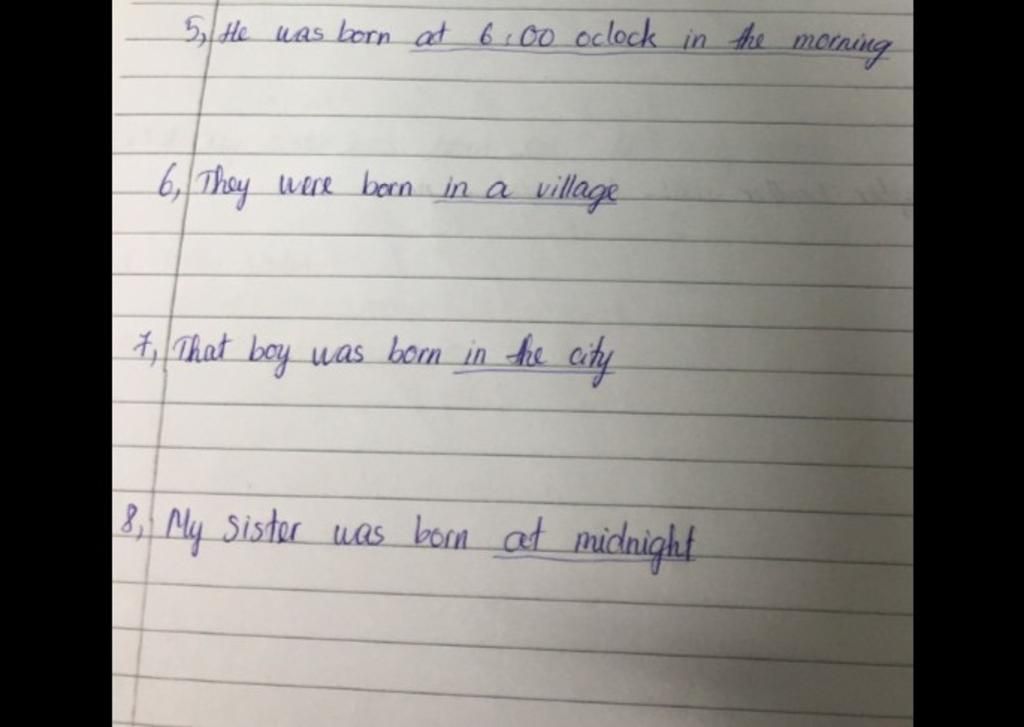 5, He was born at 6:00 oclock in the morning
6, They were born in a village
7, That boy was born in the city
8, My sister was born at midnight